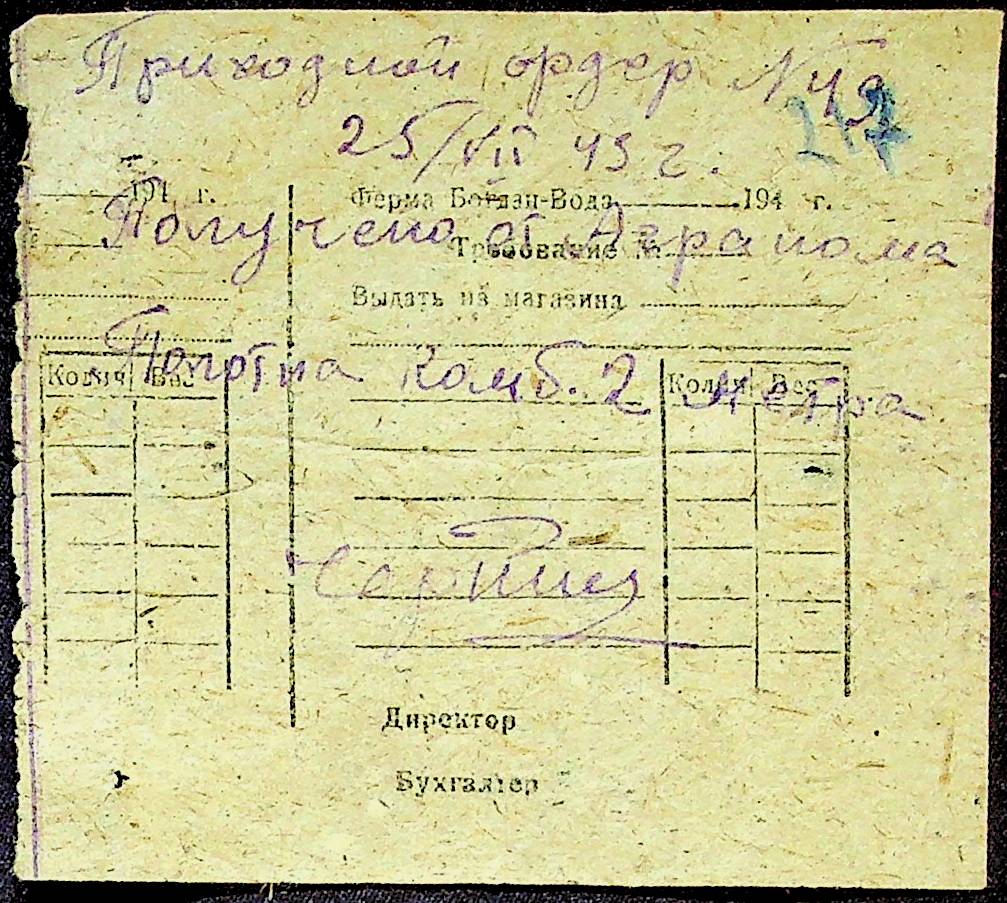 Приходной ордер № 49
247
25/VII 43 г.
194 г.
Ферма Богдан-Вода 194 г.
Получено от Агранома
Требование №
Выдать из магазина
Полотна комб. 2 метра
Колич Вес
Колич Вес
Директор
Бухгалтер